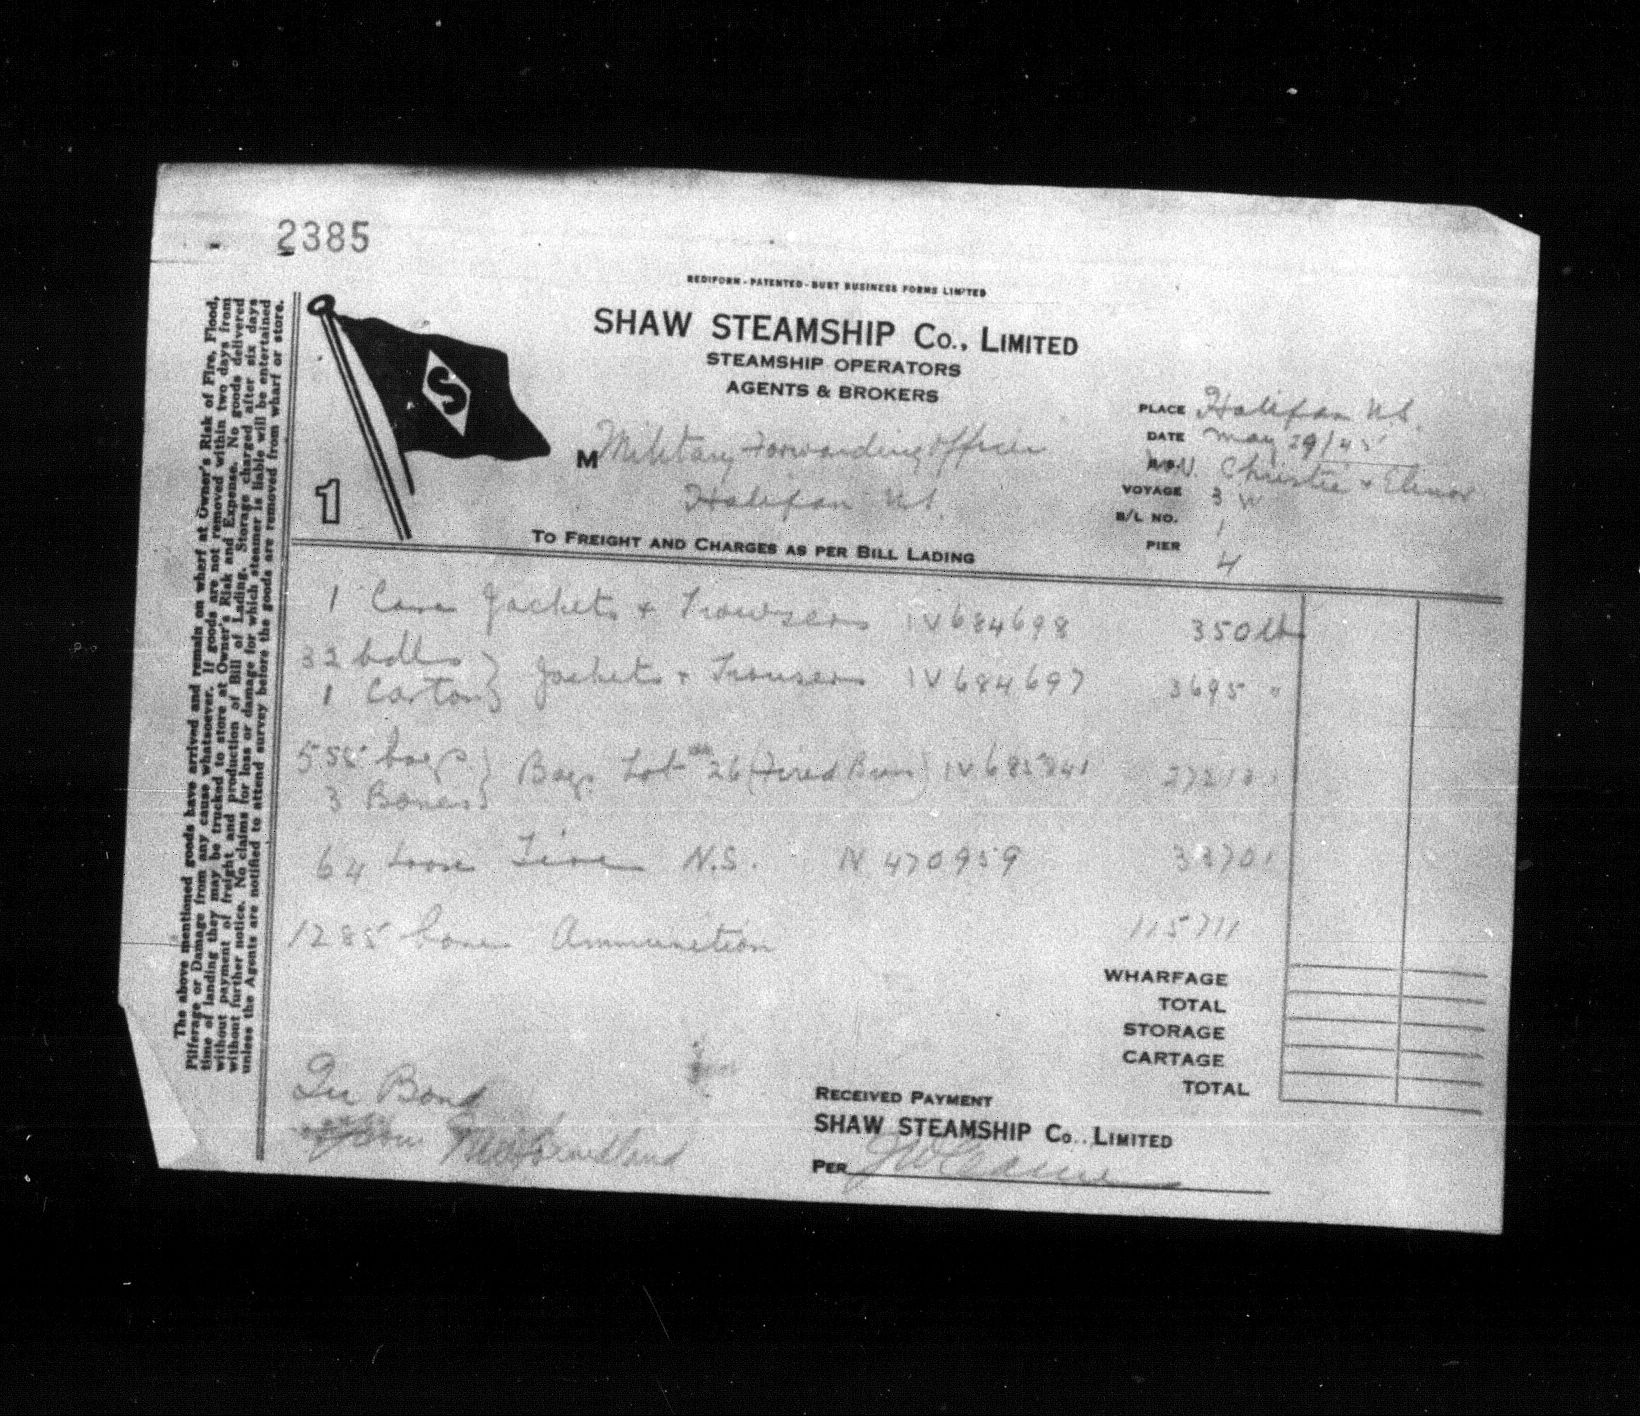 2385
REDIFORM-PATENTED-BURT BUSINESS FORMS LIMITED
SHAW STEAMSHIP Co., LIMITED
STEAMSHIP OPERATORS
AGENTS & BROKERS
S
1
M Military Forwarding Officer
Halifax N.S.
PLACE Halifax N.S.
DATE May 29/45
M.V. Christie & Elinor
VOYAGE 3 W
B/L NO. 1
PIER 4
TO FREIGHT AND CHARGES AS PER BILL LADING
1 Case Jackets & Trowsers IV684698 350 lbs
32 bdls } Jackets & Trousers IV684697 3695 "
1 Carton
558 bags } Bags Lot 26 (Fired Brass)
3 Boxes
64 loose Tires N.S. IV 470959
1285 boxes Ammunition 115711
WHARFAGE
TOTAL
STORAGE
CARTAGE
TOTAL
In Bond
from Newfoundland
RECEIVED PAYMENT
SHAW STEAMSHIP Co., LIMITED
PER
The above mentioned goods have arrived and remain on wharf at Owner's Risk of Fire, Flood,
Pilferage or Damage from any cause whatsoever. If goods are not removed within two days from
time of landing they may be trucked to store at Owner's Risk and Expense. No goods delivered
without payment of freight and production of Bill of Lading. Storage charged after six days
without further notice. No claims for loss or damage for which steamer is liable will be entertained
unless the Agents are notified to attend survey before the goods are removed from wharf or store.